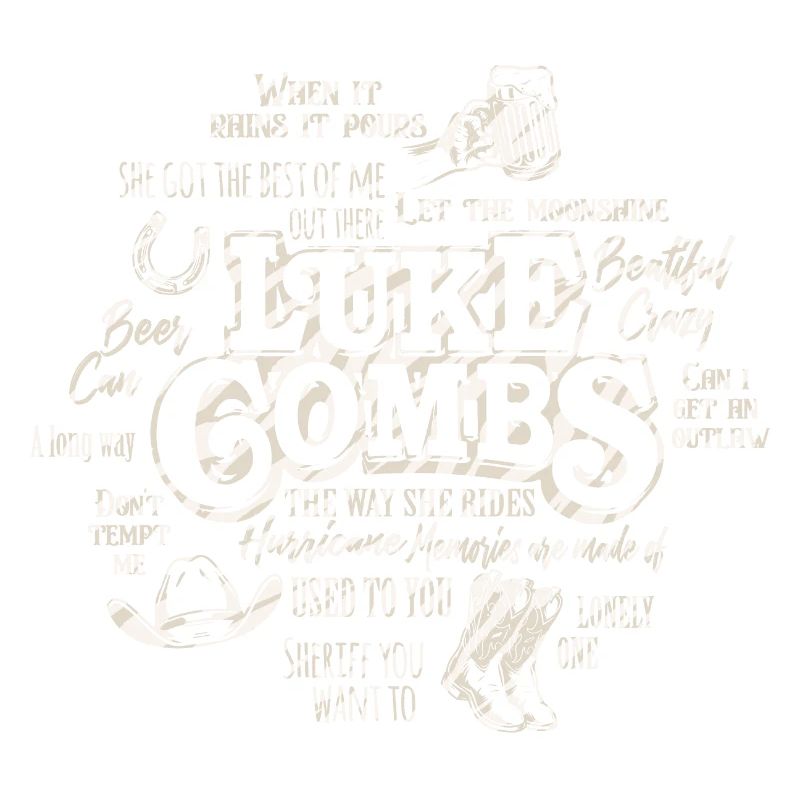 WHEN IT
RAINS IT POURS
SHE GOT THE BEST OF ME
OUT THERE
LET THE MOONSHINE
LUKE
COMBS
Beatiful
Crazy
Beer
Can
CAN I
GET AN
OUTLAW
A long way
DON'T
TEMPT
ME
THE WAY SHE RIDES
Hurricane
Memories are made of
USED TO YOU
LONELY
ONE
SHERIFF YOU
WANT TO